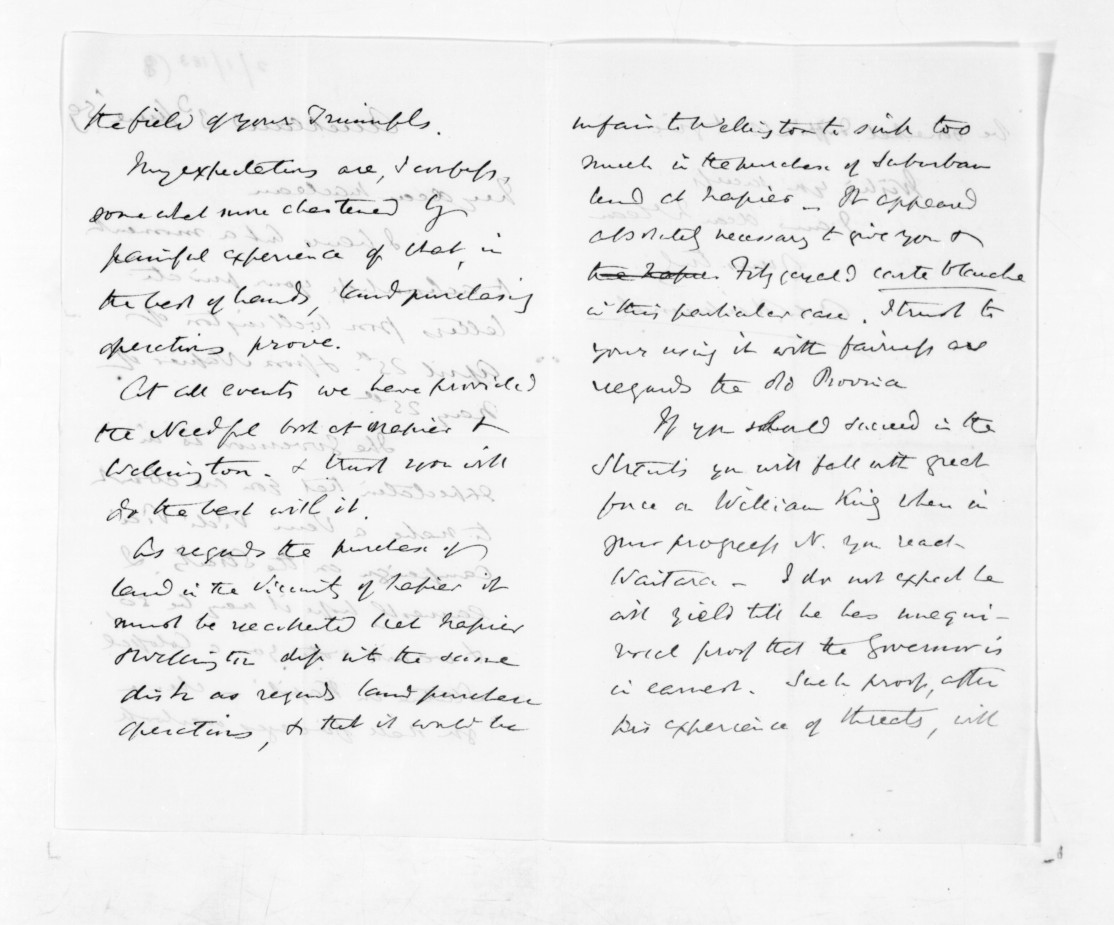 the field of your Triumphs.
My expectations are, I confess,
somewhat more chastened by
painful experience of what, in
the best of hands, land purchasing
operations prove.
At all events we have provided
the Needful both at Napier &
Wellington. & trust you will
do the best with it.
As regards the purchase of
land in the Vicinity of Napier it
must be recollected that Napier
& Wellington dip into the same
dish as regards land purchase
operations, & that it would be
unfair to Wellington to sink too
much in the purchase of Suburban
land at Napier – It appeared
absolutely necessary to give you &
the Napier Fitzgerald carte blanche
in this particular case. I trust to
your using it with fairness as
regards the old Province
If you should succeed in the
Straits you will fall with great
force on William King when in
your progress N. you reach
Waitara – I do not expect he
will yield till he has unequi-
vocal proof that the Governor is
in earnest. Such proof, after
his experience of threats, will